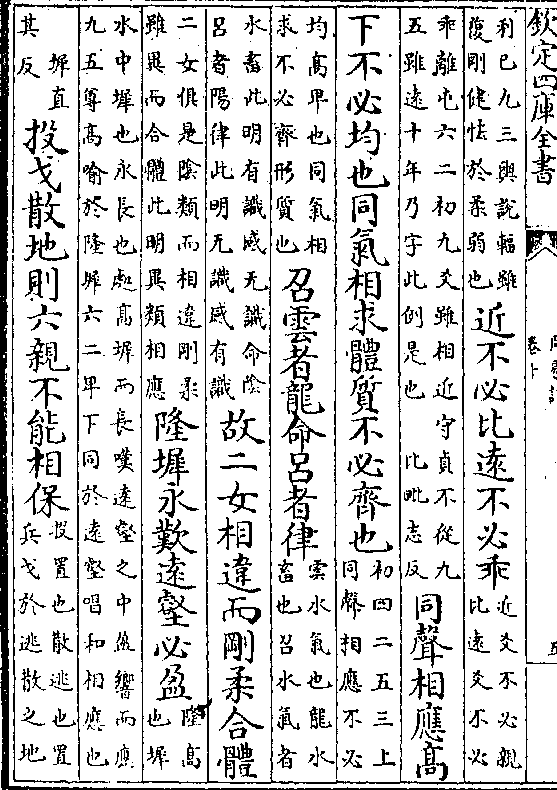 欽定四庫全書
卷十
五
利已九三輿說輻雖
復剛健怯於柔弱也
近不必比遠不必乖
近爻不必親
比遠爻不必
乖離屯六二初九爻雖相近守貞不從九
五雖遠十年乃字此例是也 比毗志反
同聲相應高
下不必均也同氣相求體質不必齊也
初四二五三上
同聲相應不必
均高卑也同氣相
求不必齊形質也
召雲者龍命呂者律
雲水氣也龍水
畜也召水氣者
水畜此明有識感无識命陰
呂者陽律此明无識感有識
故二女相違而剛柔合體
二女俱是陰類而相違剛柔
雖異而合體此明異類相應
隆墀永歎遠壑必盈
隆高
也墀
水中墀也永長也處高墀而長嘆遠壑之中盈響而應
九五尊高喻於隆墀六二卑下同於遠壑唱和相應也
墀直
其反
投戈散地則六親不能相保
投置也散逃也置
兵戈於逃散之地